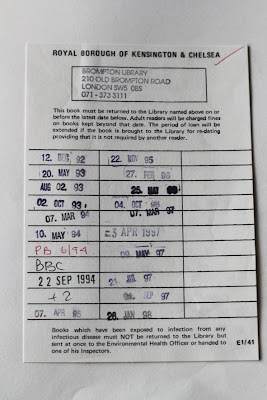 ROYAL BOROUGH OF KENSINGTON & CHELSEA
BROMPTON LIBRARY
210 OLD BROMPTON ROAD
LONDON SW5 0BS
071-373 3111
This book must be returned to the Library named above on or
before the latest date below. Adult readers will be charged fines
on books kept beyond that date. The period of loan will be
extended if the book is brought to the Library for re-dating
providing that it is not required by another reader.
12. DEC 92 22. NOV 95
20. MAY 93 27. FEB 96
AUG 02. 93 25.
02. OCT 93. 04. OCT
07. MAR 94 07. MAR 97
10. MAY 94 -3 APR 1997
PB 6/94 MAY 97
BBC
22 SEP 1994 97
+2 SEP 97
07. APR 95 26. JAN 98
Books which have been exposed to infection from any
infectious disease must NOT be returned to the Library but
sent at once to the Environmental Health Officer or handed to
one of his Inspectors.
E1/41